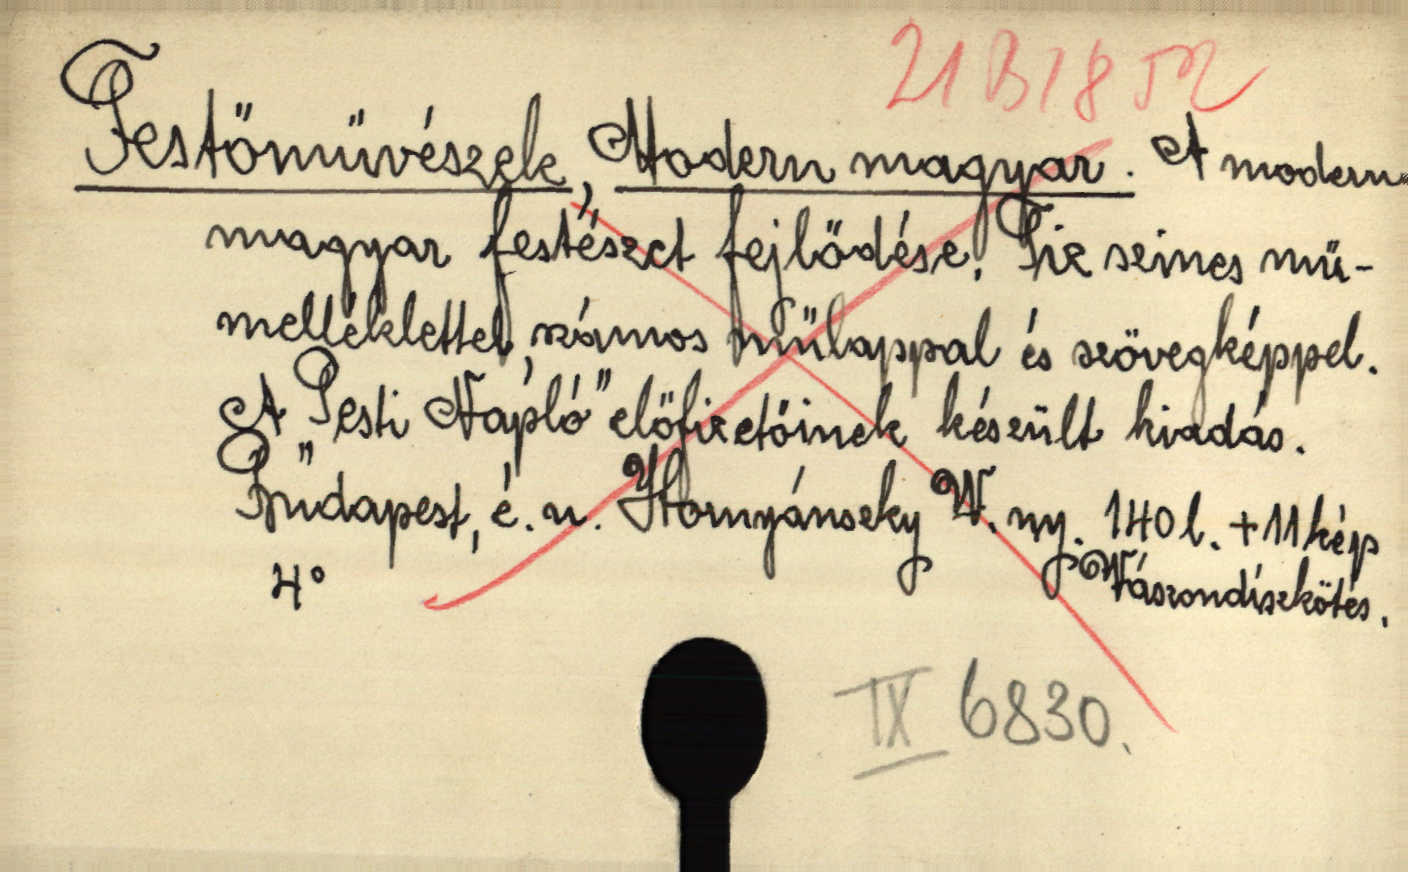 21 B 1852
Festőművészek, Modern magyar. A modern
magyar festészet fejlődése. Tiz szines mű-
melléklettel, számos műlappal és szövegképpel.
A "Pesti Napló" előfizetőinek készült kiadás.
Budapest, é. n. Hornyánszky V. ny. 140 l. + 11 kép
4° Vászondiszkötés.
IX 6830.